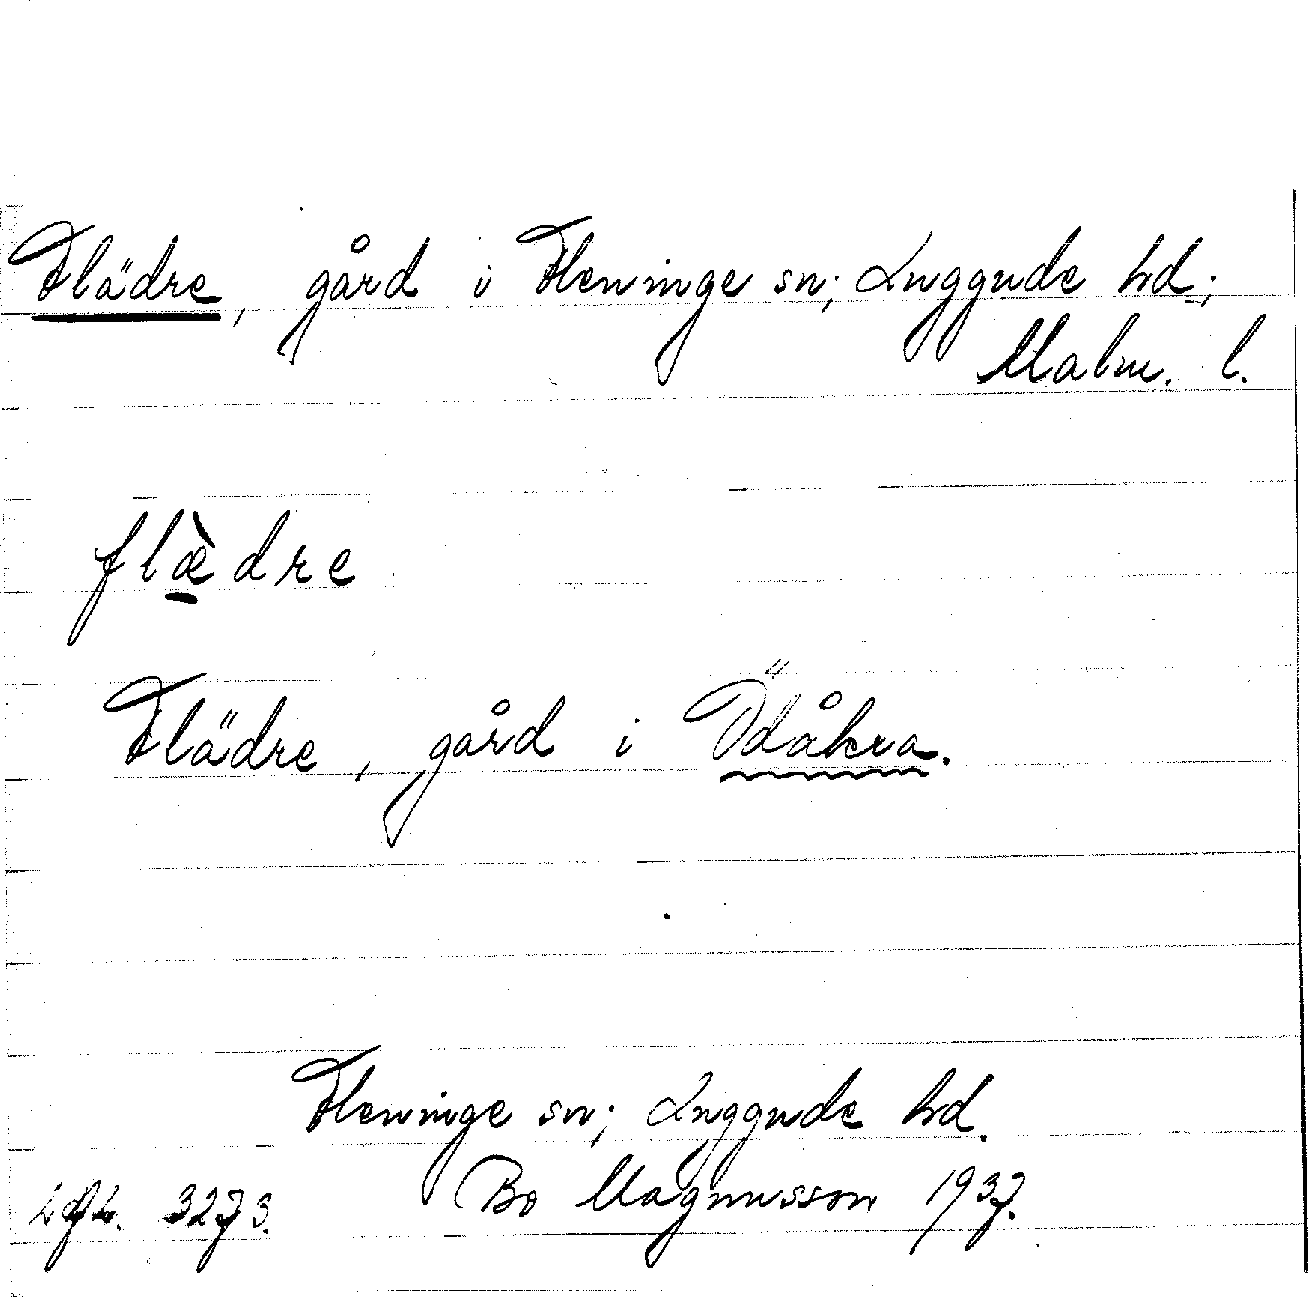 Flädre, gård i Fleninge sn; Luggude hd;
Malm. l.
flæ̀dre
Flädre, gård i Ödåkra.
Fleninge sn; Luggude hd.
Bo Magnusson 1937.
3273.